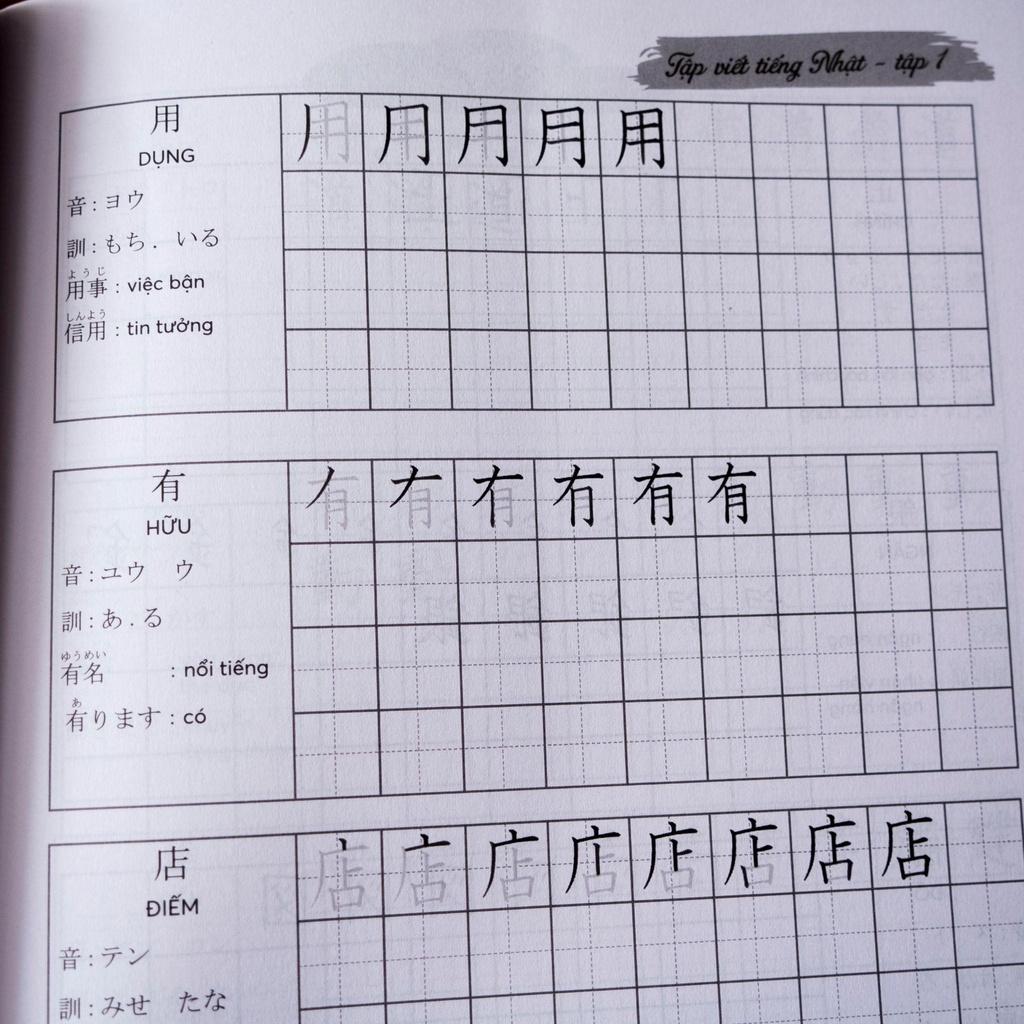 Tập viết tiếng Nhật - tập 1
用
DỤNG
用 用
音 : ヨウ
訓 : もち . いる
ようじ
用事 : việc bận
しんよう
信用 : tin tưởng
有
HỮU
有 有 有 有
音 : ユウ ウ
訓 : あ . る
ゆうめい
有名 : nổi tiếng
あ
有ります : có
店
ĐIẾM
店 店 店 店 店 店 店 店
音 : テン
訓 : みせ たな